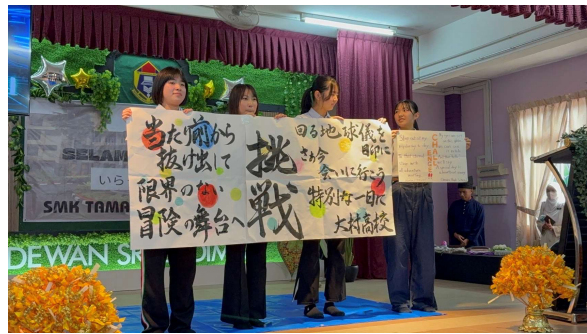 SELAM
いら
SMK TAMA
DEWAN SR
DIM
当た前から
抜け出して
限界のない
冒険の舞台へ
挑戦
回る地球儀を
目印に
さぁ今
会いに行こう
特別な一日に
大村高校